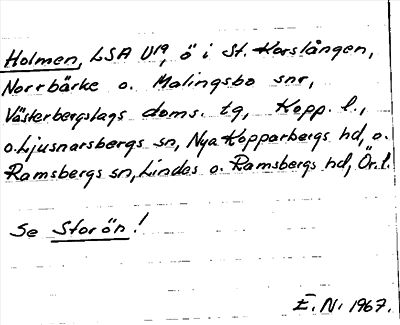 Holmen, LSA U19, ö i St. Korslången,
Norrbärke o. Malingsbo snr,
Västerbergslags doms. tg, Kopp. l.,
o. Ljusnarsbergs sn, Nya Kopparbergs hd, o.
Ramsbergs sn, Lindes o. Ramsbergs hd, Ör. l.
Se Storön!
E. N. 1967.